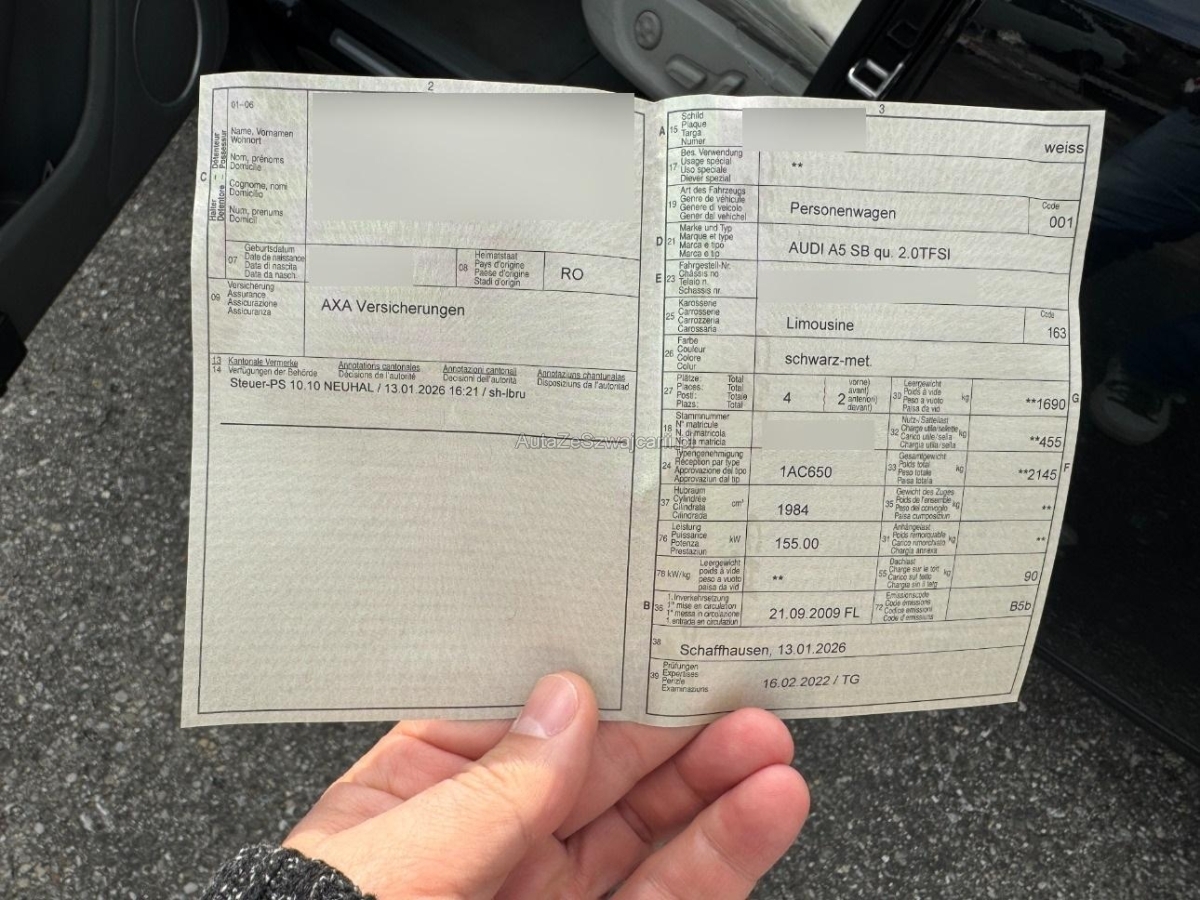 2
01–06
Name, Vornamen
Wohnort
Nom, prénoms
Domicile
Cognome, nomi
Domicilio
Num, prenums
Domicil
C
Halter – Détenteur
Detentore – Possessur
07
Geburtsdatum
Date de naissance
Data di nascita
Data da nasch.
08
Heimatstaat
Pays d'origine
Paese d'origine
Stadi d'origin
RO
09
Versicherung
Assurance
Assicurazione
Assicuranza
AXA Versicherungen
13
14
Kantonale Vermerke
Verfügungen der Behörde
Annotations cantonales
Décisions de l'autorité
Annotazioni cantonali
Decisioni dell'autorità
Annotaziuns chantunalas
Disposiziuns da l'autoritad
Steuer-PS 10.10 NEUHAL / 13.01.2026 16:21 / sh-lbru
AutaZeSzwajcarii.pl
3
A 15
Schild
Plaque
Targa
Numer
weiss
17
Bes. Verwendung
Usage spécial
Uso speciale
Diever spezial
**
19
Art des Fahrzeugs
Genre de véhicule
Genere di veicolo
Gener dal vehichel
Personenwagen
Code
001
D 21
Marke und Typ
Marque et type
Marca e tipo
Marca e tip
AUDI A5 SB qu. 2.0TFSI
E 23
Fahrgestell-Nr.
Châssis no
Telaio n.
Schassis nr.
25
Karosserie
Carrosserie
Carrozzeria
Carossaria
Limousine
Code
163
26
Farbe
Couleur
Colore
Colur
schwarz-met.
27
Plätze: Total
Places: Total
Posti: Totale
Plazs: Total
4
2
vorne)
avant)
anteriori)
davant)
30
Leergewicht
Poids à vide
Peso a vuoto
Paisa da vid
kg
**1690
G
18
Stammnummer
N° matricule
N. di matricola
Nr. da matricla
32
Nutz-/Sattellast
Charge utile/sellette
Carico utile/sella
Chargia utila/sella
kg
**455
24
Typengenehmigung
Réception par type
Approvazione del tipo
Approvaziun dal tip
1AC650
33
Gesamtgewicht
Poids total
Peso totale
Paisa totala
kg
**2145
F
37
Hubraum
Cylindrée
Cilindrata
Cilindrada
cm³
1984
35
Gewicht des Zuges
Poids de l'ensemble
Peso del convoglio
Paisa cumposiziun
kg
**
76
Leistung
Puissance
Potenza
Prestaziun
kW
155.00
31
Anhängelast
Poids remorquable
Carico rimorchiato
Chargia annexa
kg
**
78 kW/kg
Leergewicht
poids à vide
peso a vuoto
paisa da vid
**
55
Dachlast
Charge sur le toit
Carico sul tetto
Chargia sin il tetg
kg
90
B 36
1. Inverkehrsetzung
1re mise en circulation
1a messa in circolazione
1. entrada en circulaziun
21.09.2009 FL
72
Emissionscode
Code émissions
Codice emissioni
Code d'emissiuns
B5b
38
Schaffhausen, 13.01.2026
39
Prüfungen
Expertises
Perizie
Examinaziuns
16.02.2022 / TG